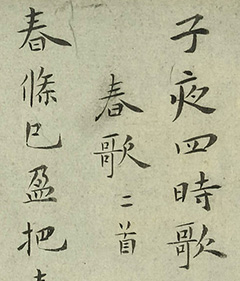 子夜四時歌
春歌二首
春條已盈把